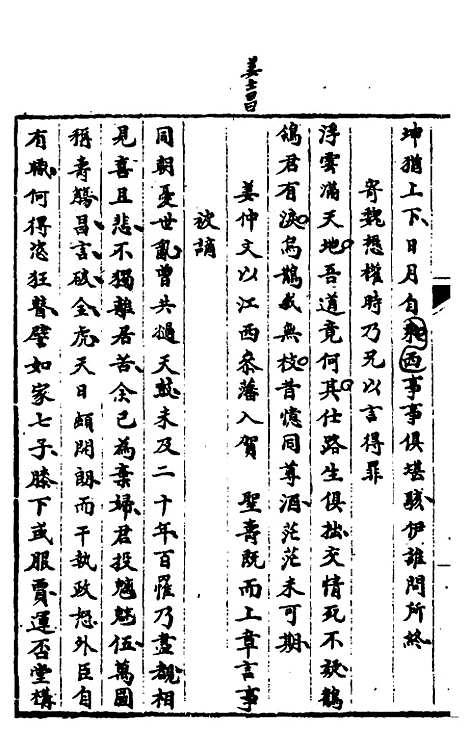 姜士昌
坤猶上下日月自東西事事俱堪駭伊誰問所終
寄魏懋權時乃兄以言得罪
浮雲滿天地吾道竟何其仕路生俱拙交情死不欺鶺
鴒君有淚烏鵲我無枝昔憶同尊酒茫茫未可期
姜仲文以江西參藩入賀 聖壽既而上章言事
被謫
同朝憂世亂曾共禠天鼓未及二十年百罹乃盡覯相
見喜且悲不獨離居苦余已為棄婦君投魑魅伍萬國
稱壽觴昌言砥金虎天日頗開朗而干執政怒外臣自
有職何得恣狂瞽譬如家七子膝下或服賈運否堂構